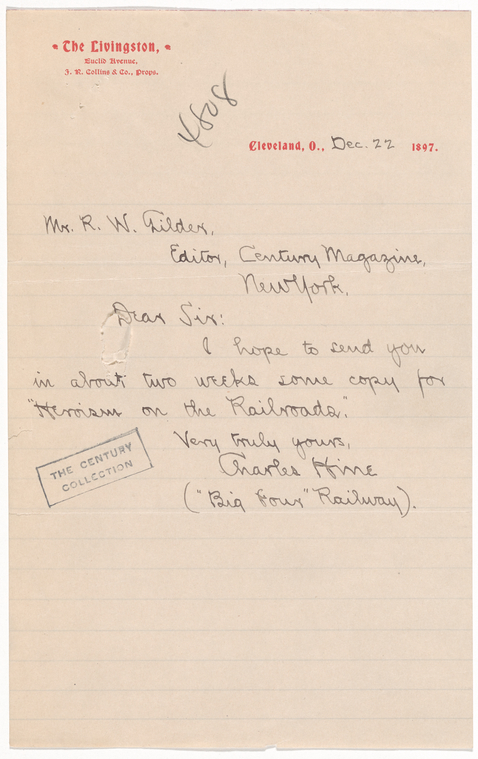 The Livingston,
Euclid Avenue,
J. R. Collins & Co., Props.
4808
Cleveland, O., Dec. 22 1897.
Mr. R. W. Gilder,
Editor, Century Magazine,
New York.
Dear Sir:
I hope to send you
in about two weeks some copy for
"Heroism on the Railroads."
Very truly yours,
Charles Hine
("Big Four" Railway).
THE CENTURY
COLLECTION